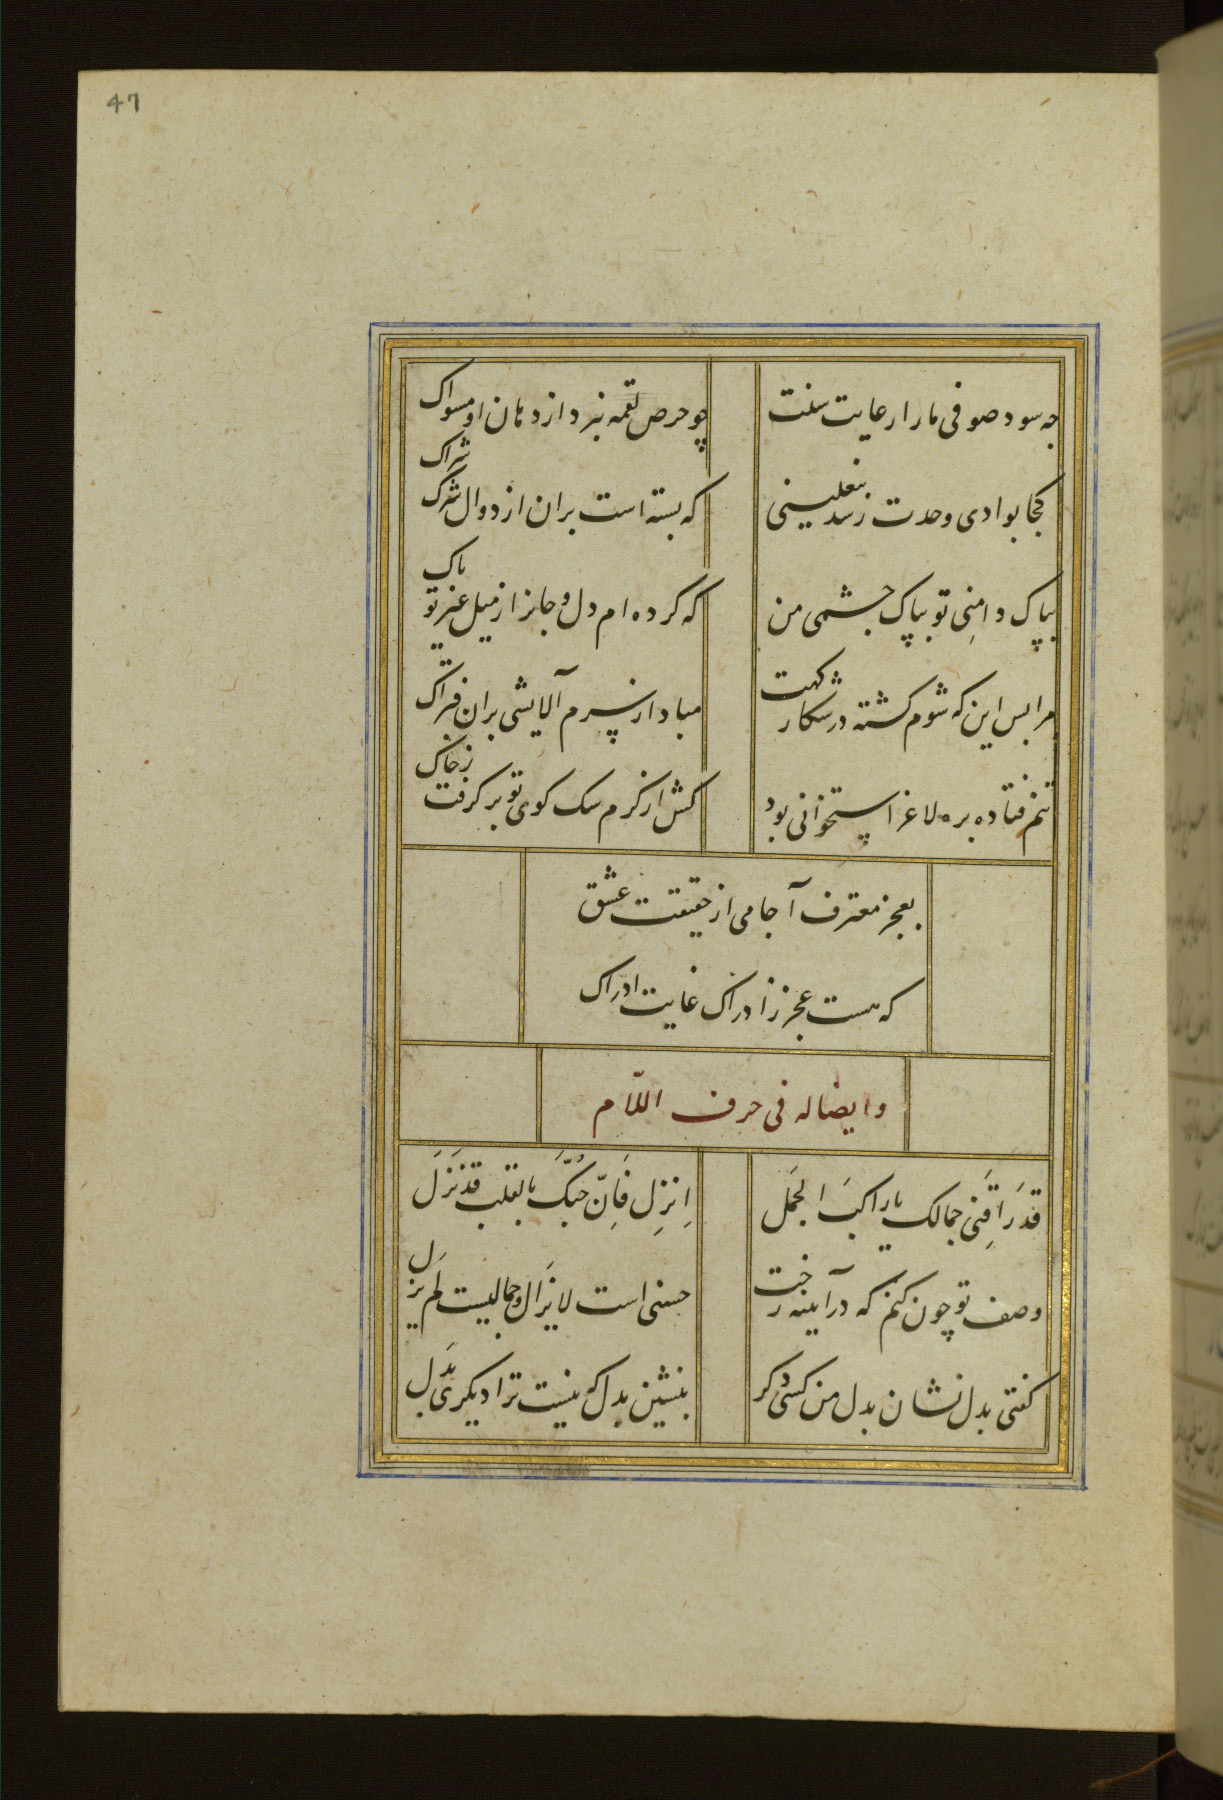 47
جه سود صوفی ما را رعایت سنت
چو حرص لقمه نبرد از دهان او مسواک
کجا بوادی وحدت رسد نعلینی
که بسته است بران از دوال شرک شراک
بپاک دامنی تو بپاک جشمی من
که کرده ام دل و جانرا ز میل غیر تو پاک
مرا بس این که شوم کشته در شکار کهت
مباد از سرم آلایشی بران فتراک
تنم فتاده بره لاغر استخوانی بود
کش از کرم سک کوی تو بر کرفت ز خاک
بعجز معترف آ جامی از حقیقت عشق
که هست عجز ز ادراک غایت ادراک
وایضا له فی حرف اللّام
قَد رَاقَنِی جمالک یا راکبَ الجَمَل
اِنزِل فَاِنّ حُبّکَ بالقلب قَد نَزَلَ
وصف تو چون کنم که در آیینه رخت
حسنی است لایَزال و جمالیست لَم یَزَل
کفتی بدل نشان بدل من کسی دکر
بنشین بدل که نیست ترا دیکری بَدَل